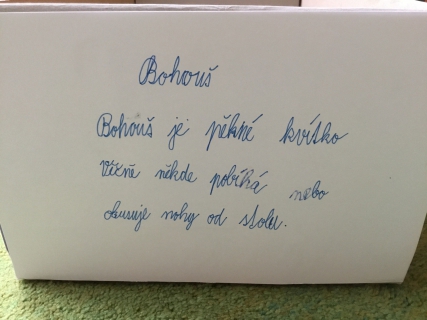 Bohouš
Bohouš je pěkné kvítko
Věčně někde pobíhá nebo
okusuje nohy od stolu.